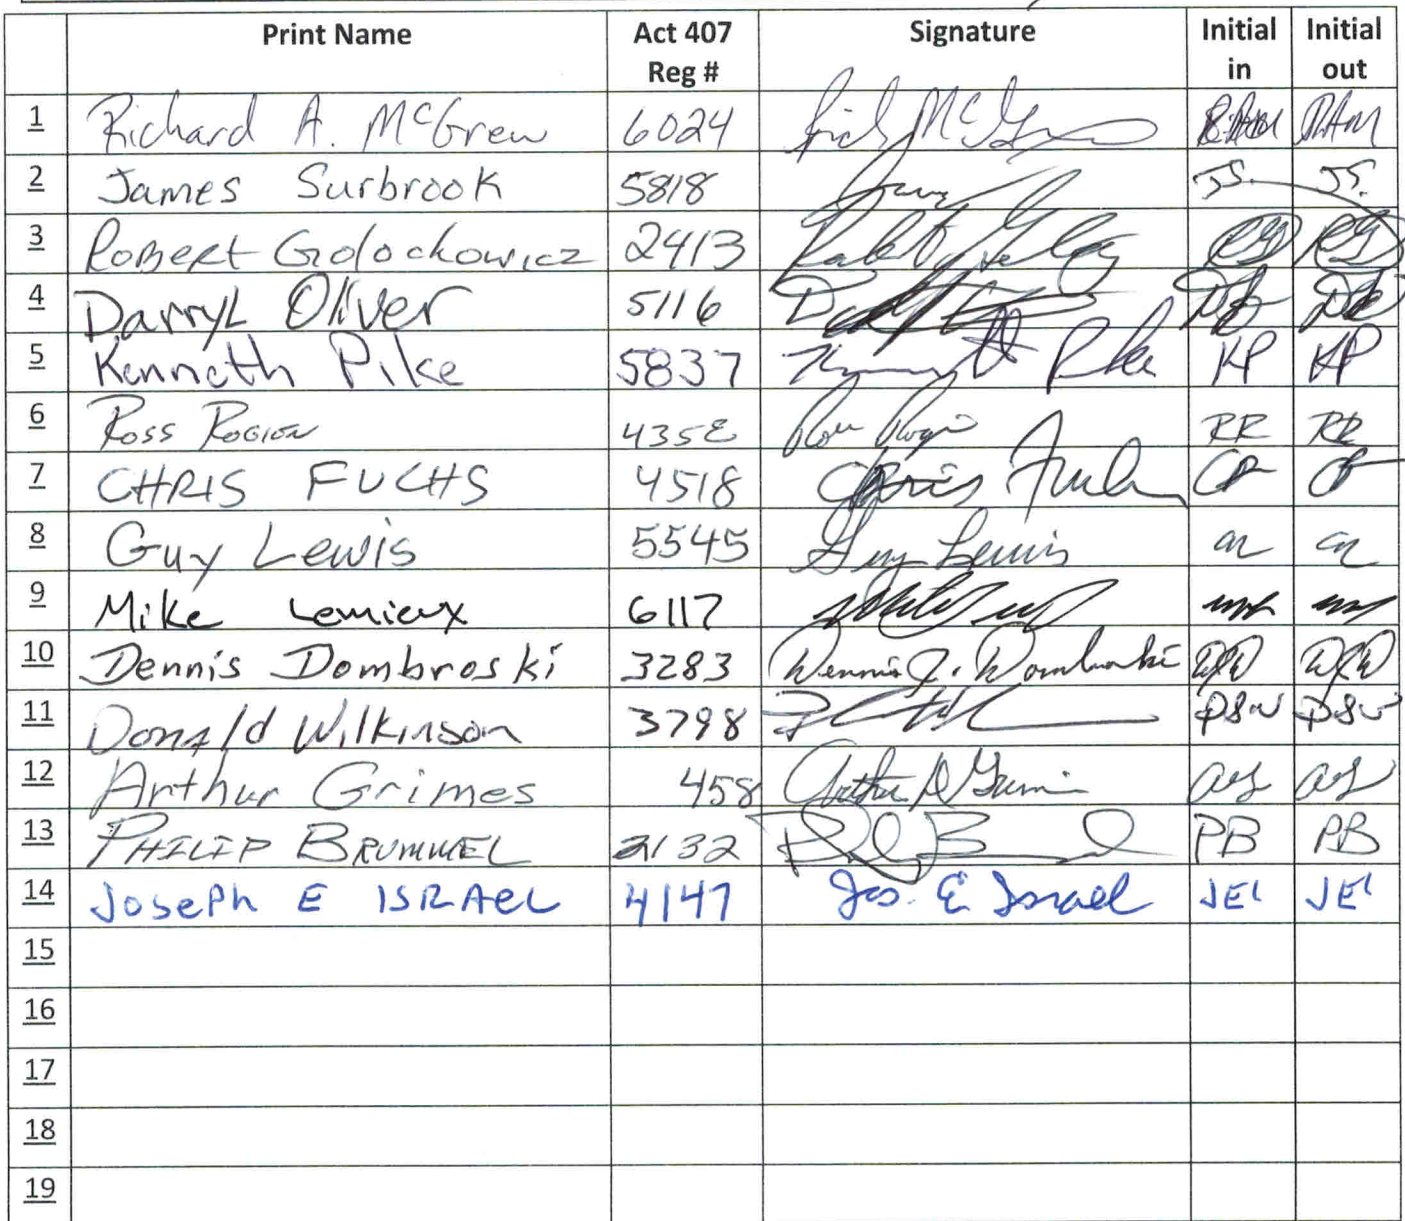 Print Name Act 407 Reg # Signature Initial in Initial out
1 Richard A. McGrew 6024 Rich McG RAM RAM
2 James Surbrook 5818 JS. JS.
3 Robert Golochowicz 2413 RG RG
4 Darryl Oliver 5116
5 Kenneth Pike 5837 Kenneth Pike KP KP
6 Ross Rogien 4352 Ross RR RR
7 CHRIS FUCHS 4518 Chris Fuchs CF CF
8 Guy Lewis 5545 Guy Lewis GL GL
9 Mike Lemieux 6117
10 Dennis Dombroski 3283 Dennis J. Dombroski DJD DJD
11 Donald Wilkinson 3798 DSW DSW
12 Arthur Grimes 458 Arthur D Grimes AG AG
13 PHILIP BRUMMEL 2132 PB PB
14 Joseph E ISRAEL 4147 Jos. E Israel JEI JEI
15
16
17
18
19